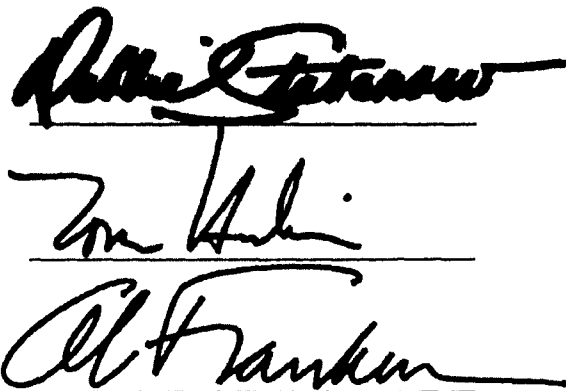 Debbie Stabenow
Tom Harkin
Al Franken